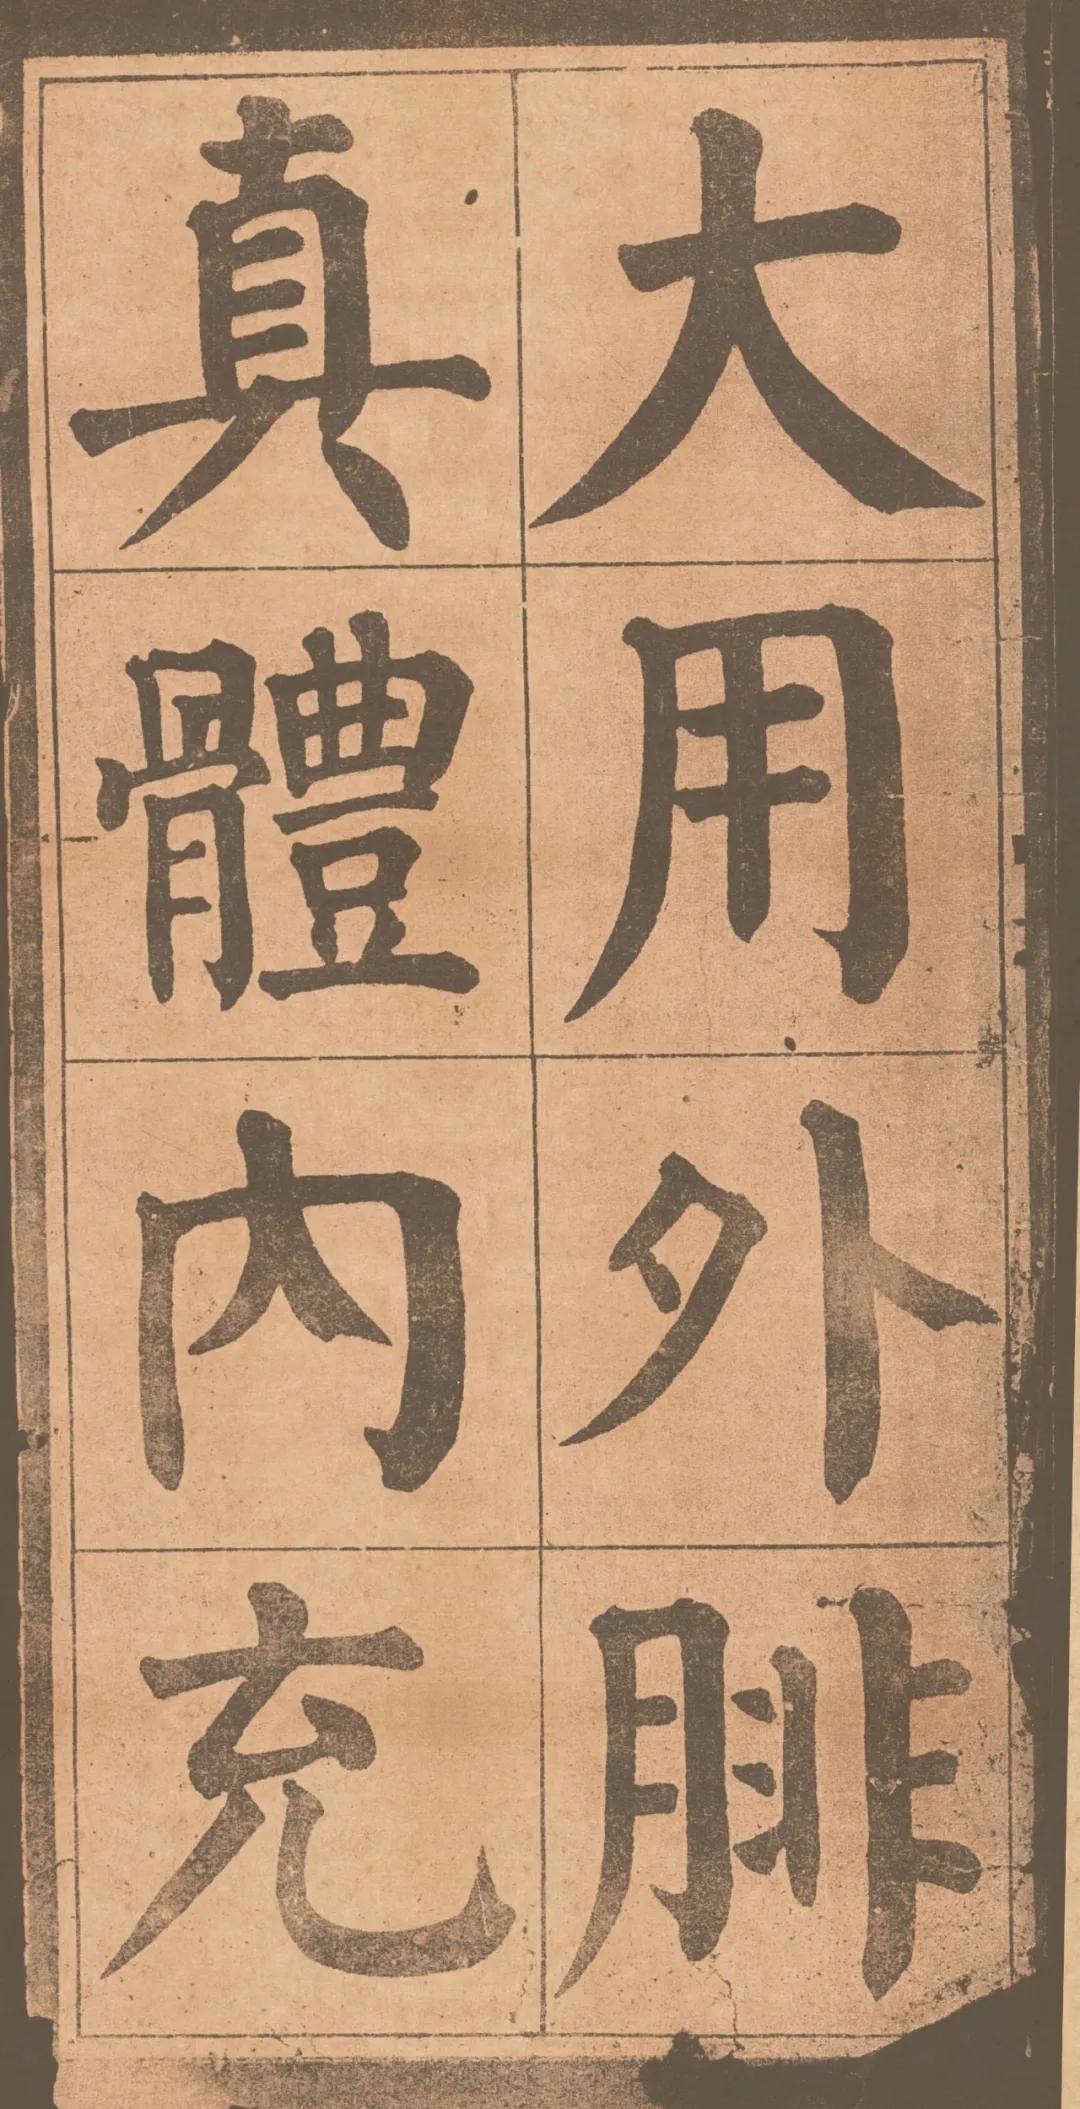 大用外腓
真體内充